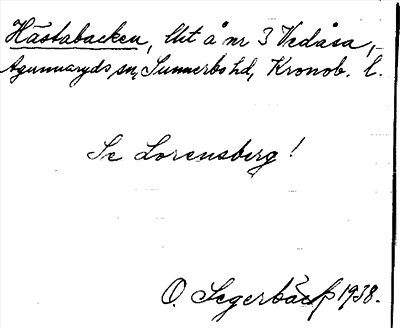 Hästabacken, lht å nr 3 Vedåsa,
Agunnaryds sn, Sunnerbo hd, Kronob. l.
Se Lorensberg!
O. Segerbäck 1938.